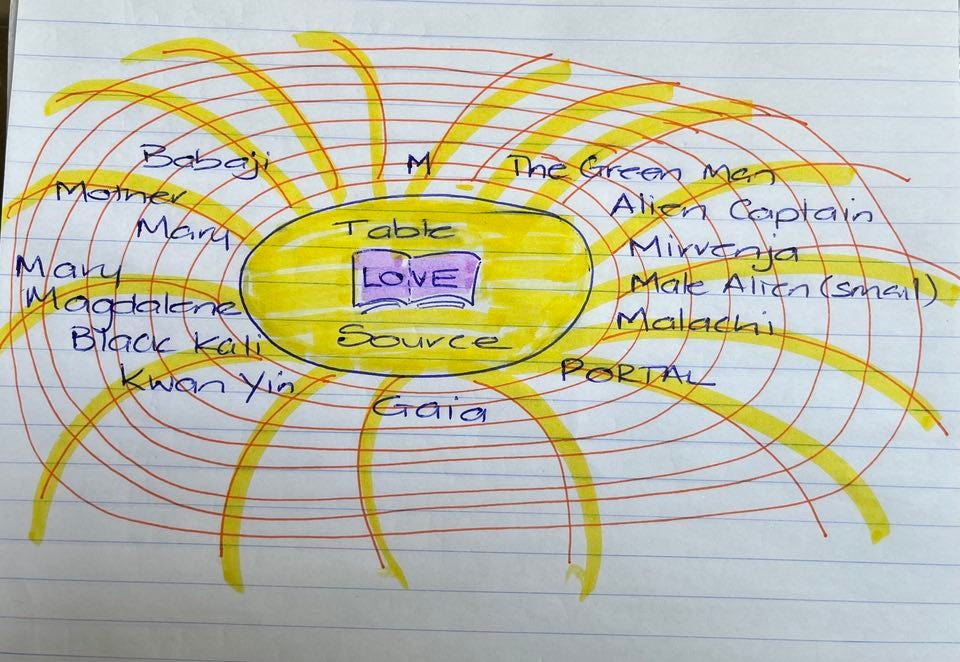 Babaji
M
The Green Man
Mother
Mary
Alien Captain
Table
Mirvenja
Mary
Magdalene
LOVE
Male Alien (small)
Source
Malachi
Black Kali
PORTAL
Kwan Yin
Gaia